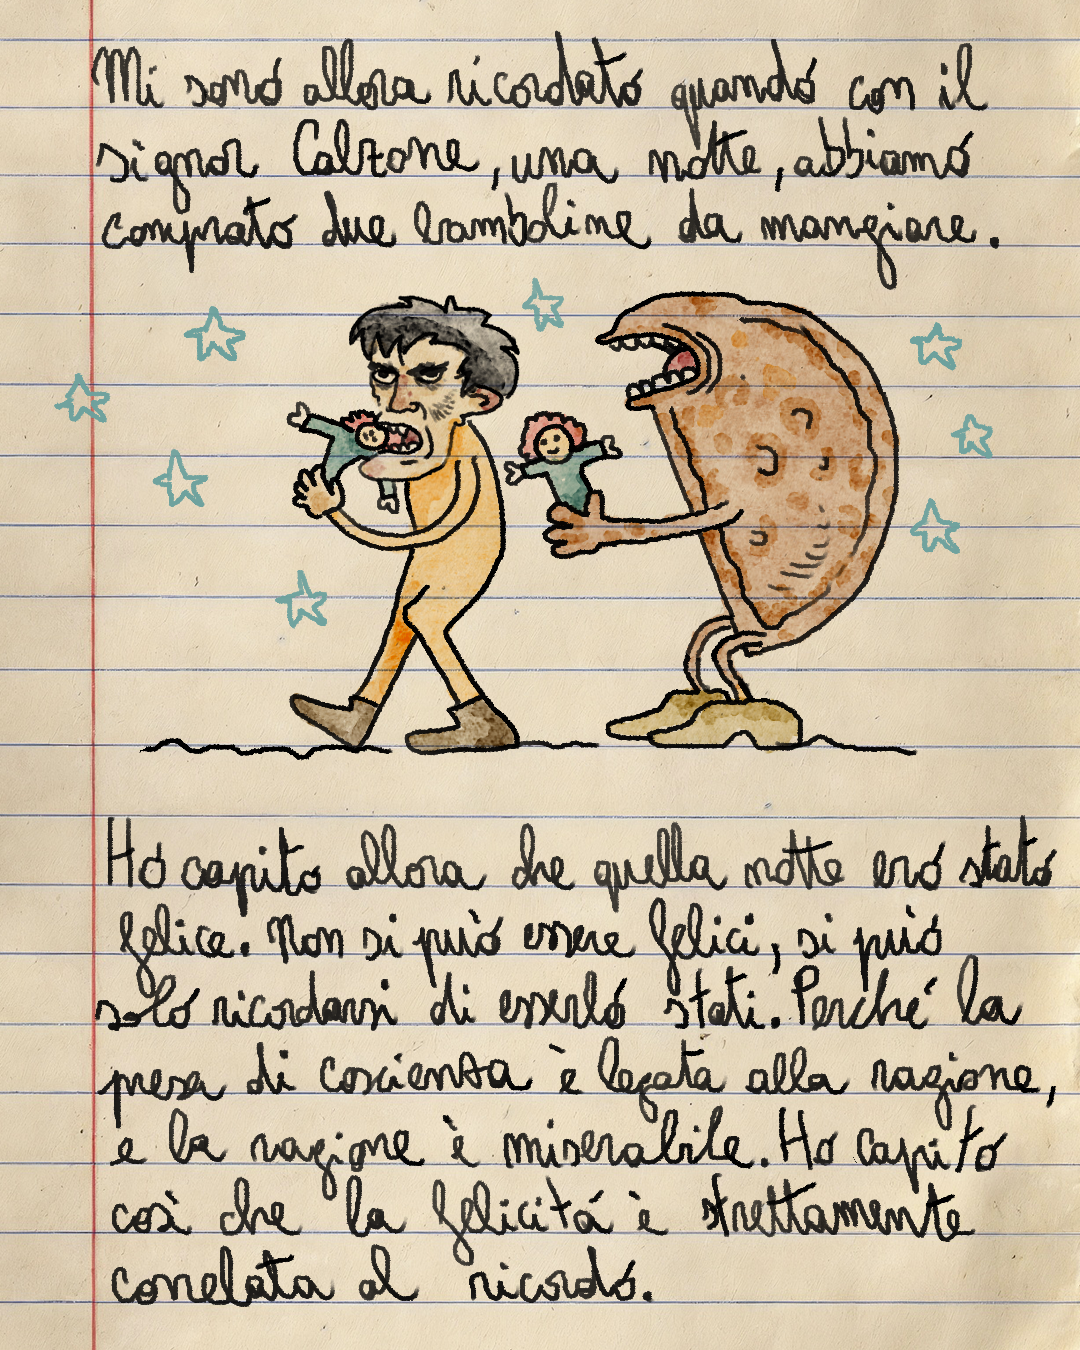 Mi sono allora ricordato quando con il
signor Calzone, una notte, abbiamo
comprato due bamboline da mangiare.
Ho capito allora che quella notte ero stato
felice. Non si può essere felici, si può
solo ricordarsi di esserlo stati. Perché la
presa di coscienza è legata alla ragione,
e la ragione è miserabile. Ho capito
così che la felicità è strettamente
correlata al ricordo.